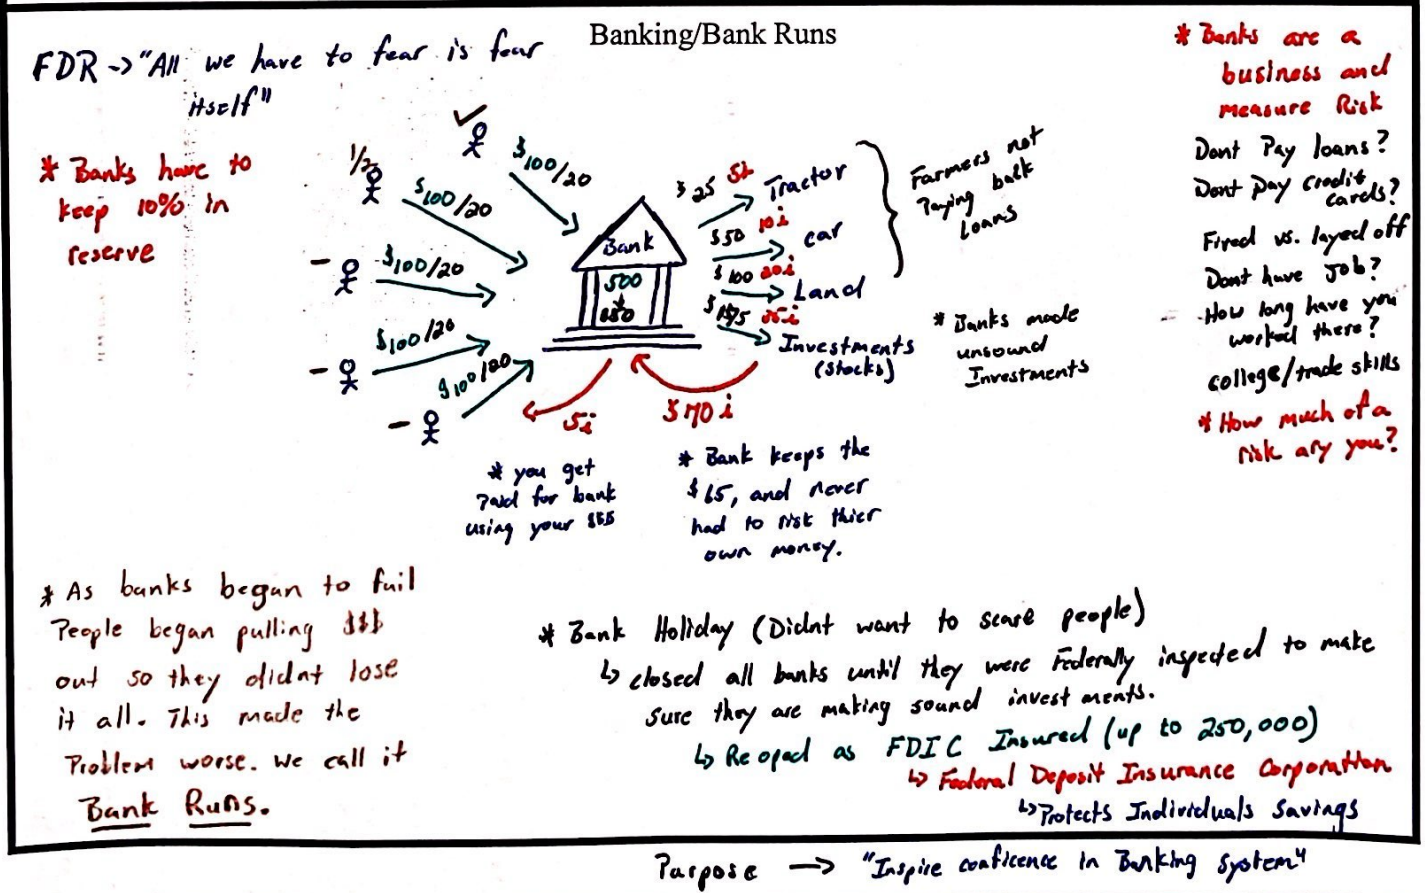 Banking/Bank Runs
FDR -> "All we have to fear is fear
itself"
* Banks have to
keep 10% in
reserve
✓
1/2
$100/20
$100/20
- $100/20
- $100/20
- $100/20
Bank
500
$25 5i Tractor
$50 10i car
$100 20i Land
35i Investments
(stocks)
Farmers not
Paying back
Loans
* Banks made
unsound
Investments
5i
$70 i
* you get
Paid for bank
using your $$$
* Bank keeps the
$65, and never
had to risk thier
own money.
* Banks are a
business and
measure Risk
Dont Pay loans?
Dont pay credit
cards?
Fired vs. layed off
Dont have Job?
- How long have you
worked there?
college/trade skills
* How much of a
risk ary you?
* As banks began to fail
People began pulling $$$
out so they didnt lose
it all. This made the
Problem worse. We call it
Bank Runs.
* Bank Holiday (Didnt want to scare people)
↳ closed all banks until they were Federally inspected to make
sure they are making sound investments.
↳ Re oped as FDIC Insured (up to 250,000)
↳ Federal Deposit Insurance Corporation
↳ Protects Individuals Savings
Purpose -> "Inspire conficence in Banking System"